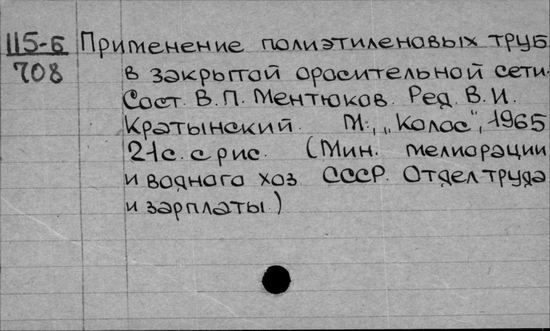 115-6 Применение полиэтиленовых труб
708 в закрытой оросительной сети.
Сост. В.П. Ментюков. Ред. В.И.
Кратынский. М., „Колос", 1965
21с. с рис. (Мин. мелиорации
и водного хоз СССР. Отдел труда
и зарплаты)